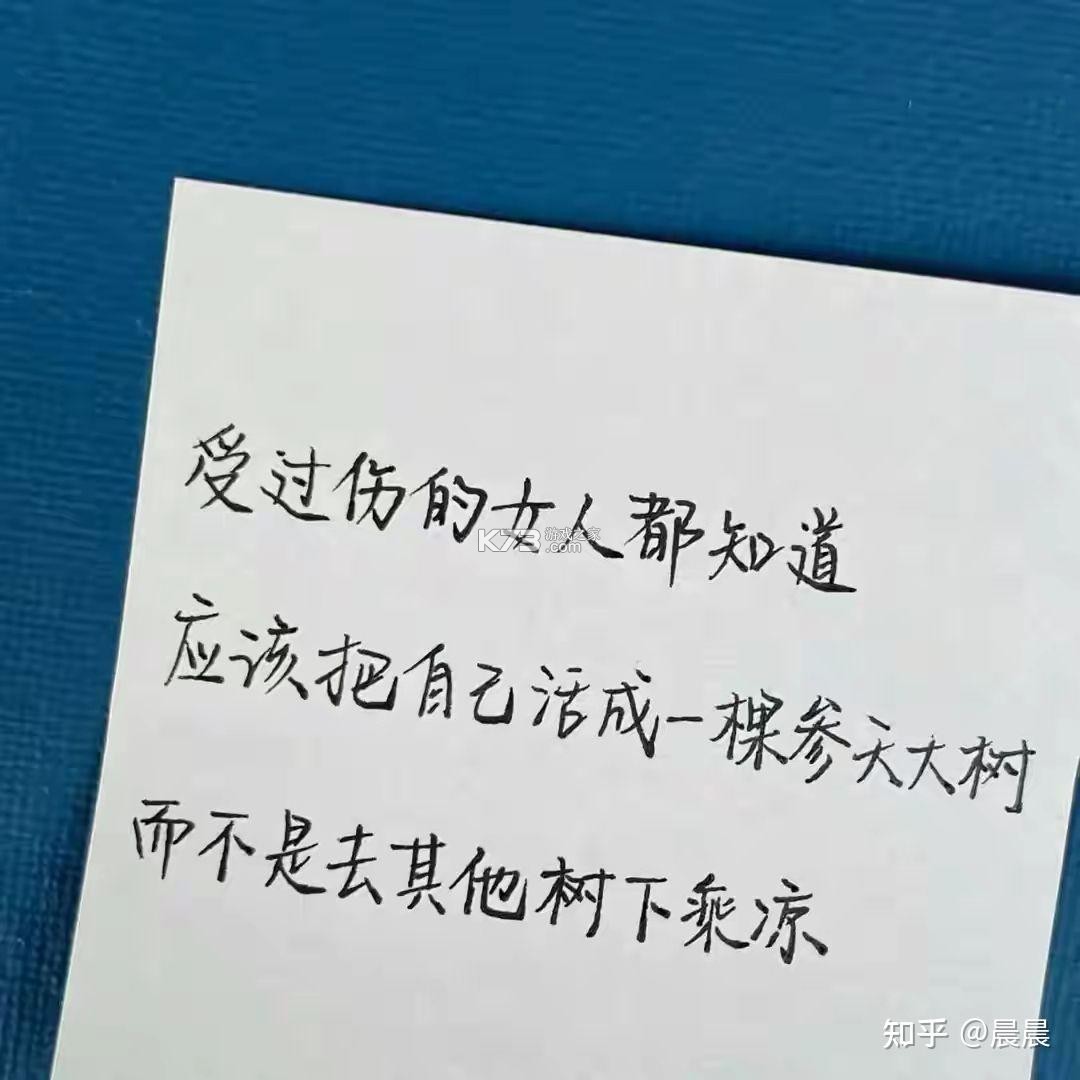 受过伤的女人都知道
K73 游戏之家
.com
应该把自己活成一棵参天大树
而不是去其他树下乘凉
知乎 @晨晨